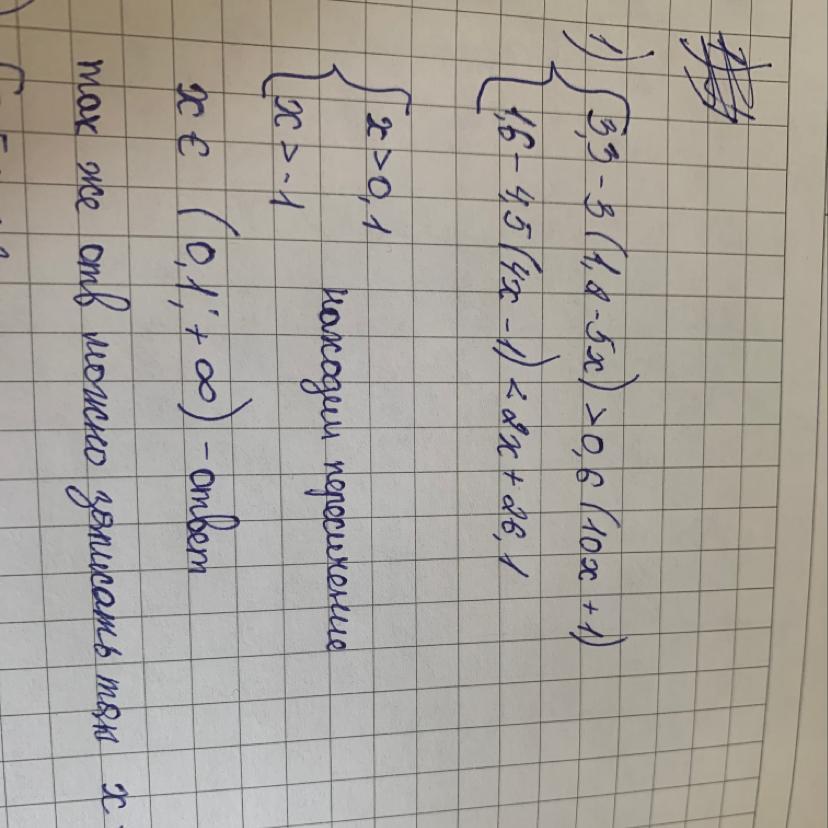 1) { 3,3 - 3(1,2 - 5x) > 0,6(10x + 1)
{ 1,6 - 4,5(4x - 1) < 2x + 26,1
{ x > 0,1
находим пересичение
{ x > -1
x ∈ (0,1; + ∞) - ответ
так же отв можно записать так x